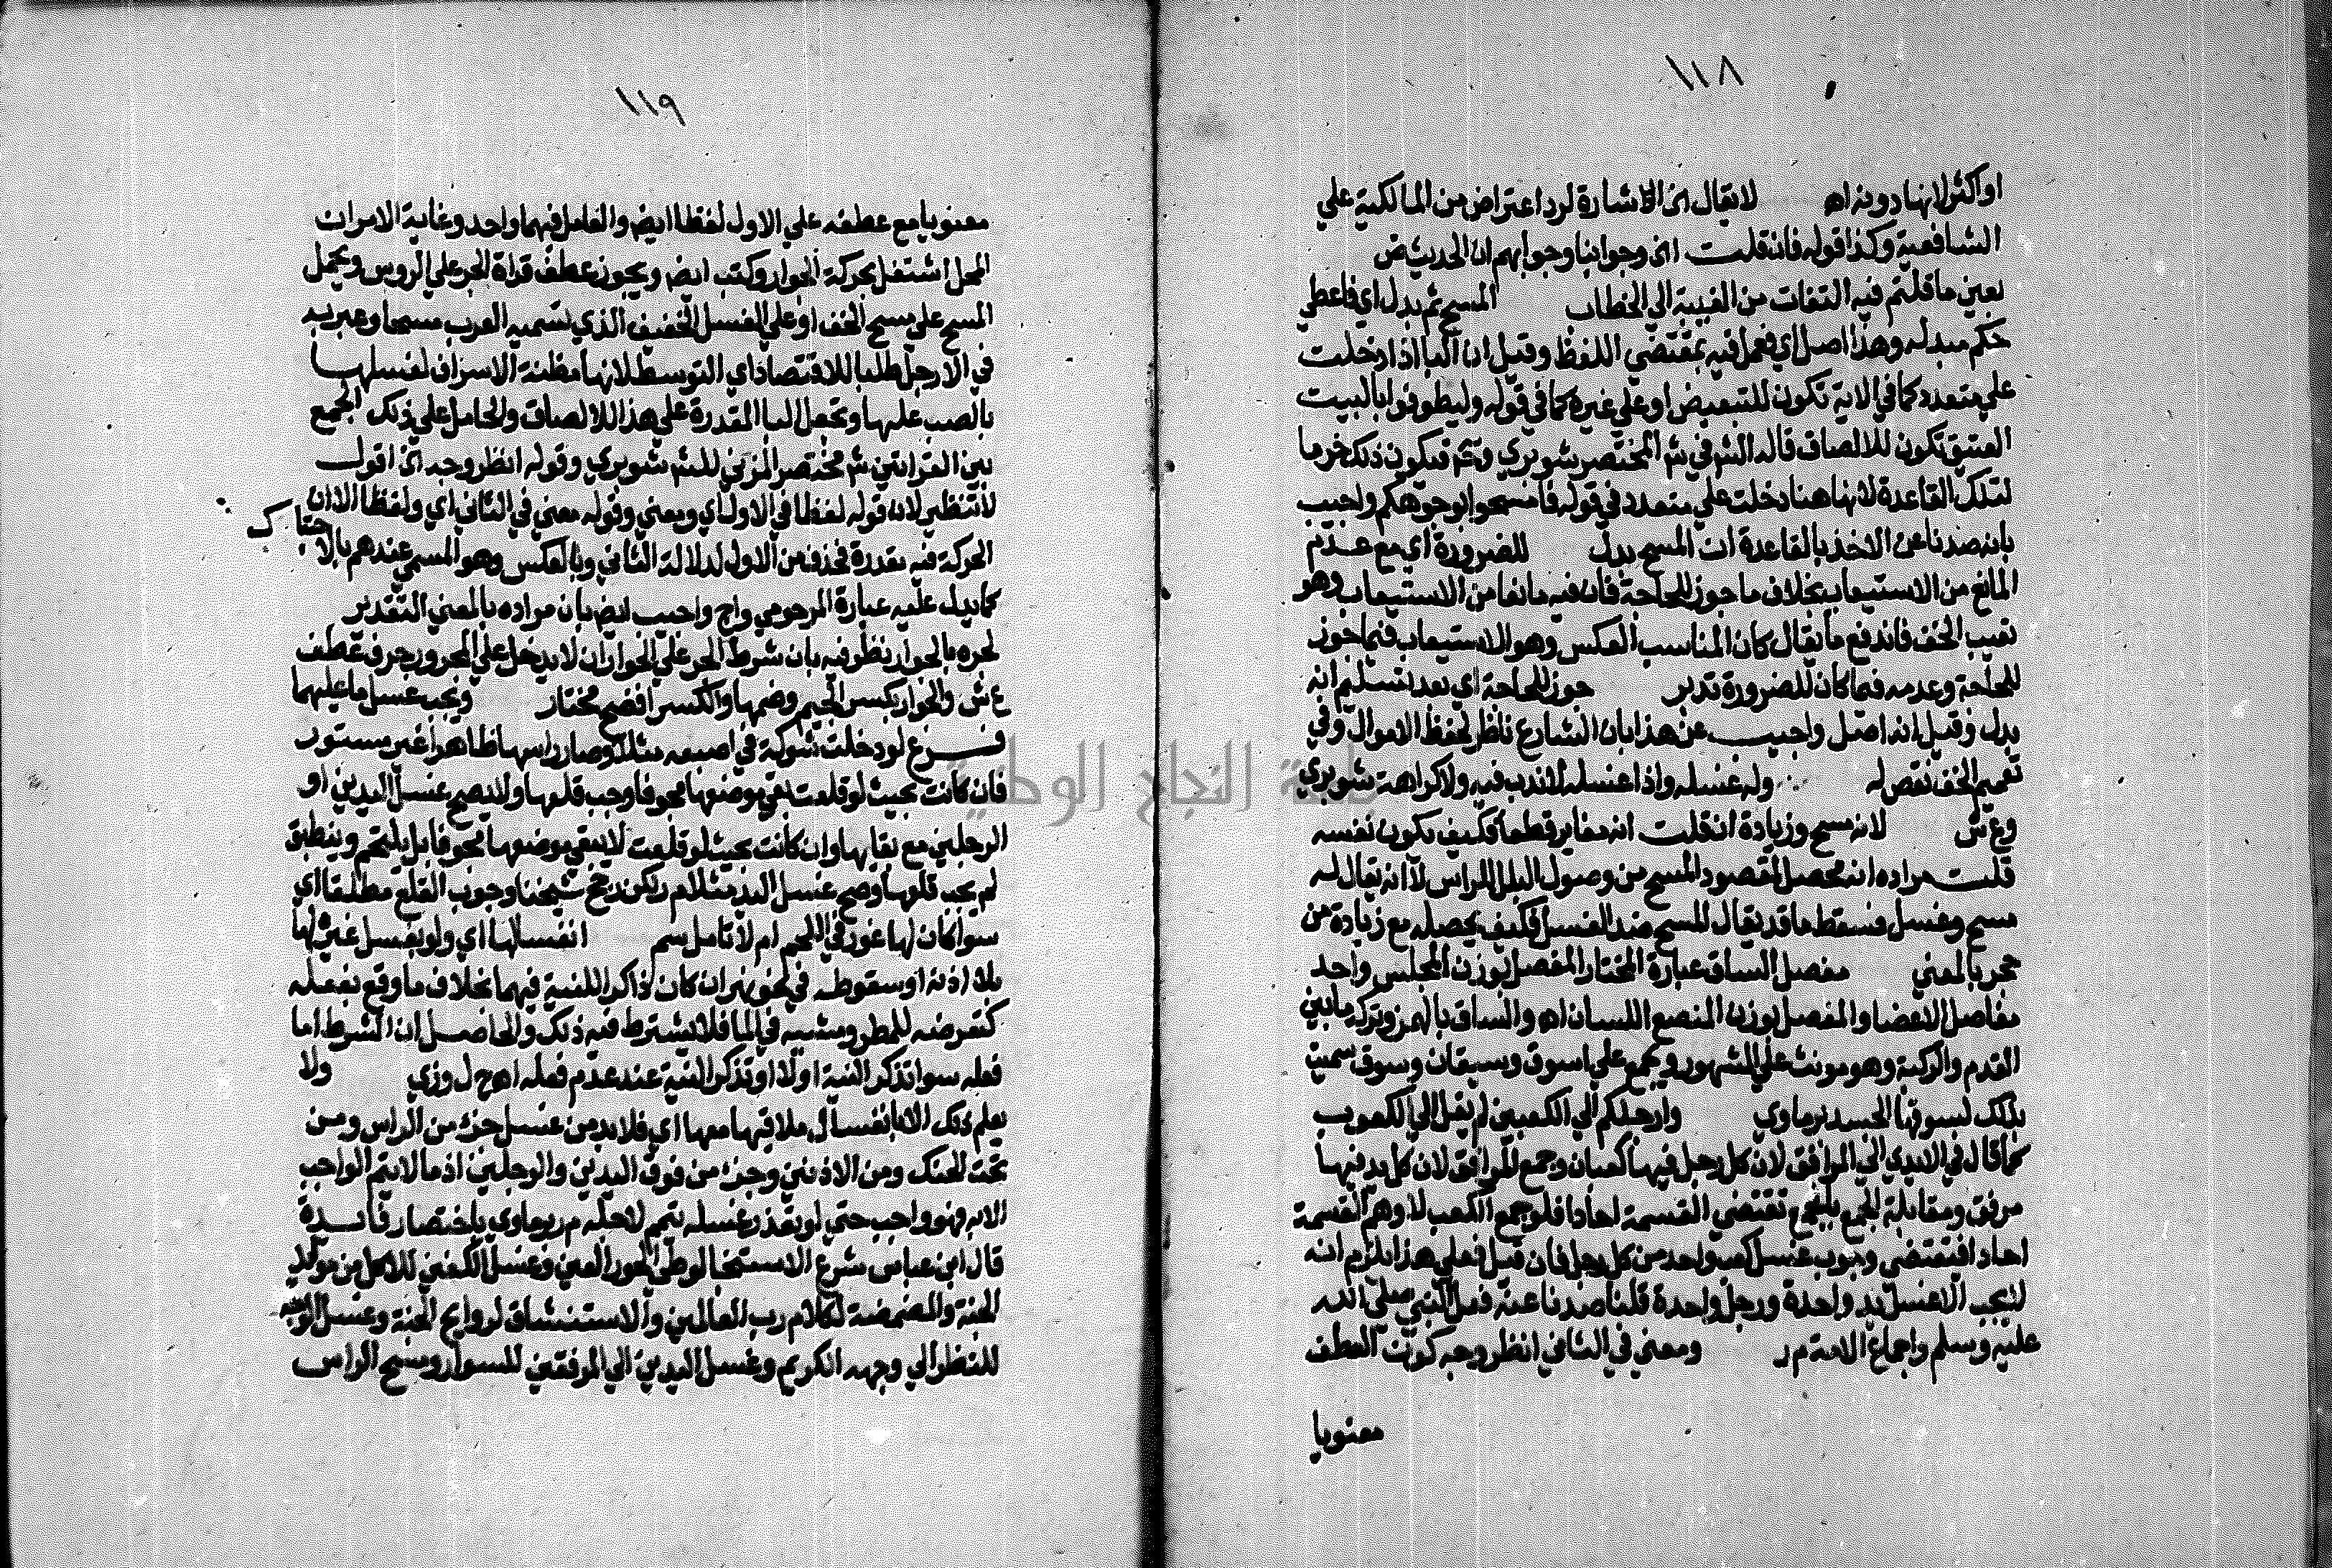 ١١٨
او اكثر لانها دونه اه لا يقال ان الاشارة لرد اعتراض من المالكية علي
الشافعية وكذا قوله فان قلت اي وجوابنا وجوابهم ان الحديث ض
بعين ما قلتم فيه التفات من الغيبة الي الخطاب المسح ثم بدل اي فاعطي
حكم مبدله وهذا اصل اي فعمل فيه بمقتضي اللفظ وقيل ان البا اذا دخلت
علي متعدد كما في الاية تكون للتبعيض او علي غيره كما في قوله وليطوفوا بالبيت
العتيق تكون للالصاق قاله الش في ش المختصر شوبري وثم فيكون ذلك خرما
لتلك القاعدة لانها هنا دخلت علي متعدد في قوله فامسحوا بوجوهكم واجيب
بانه صدنا عن الاخذ بالقاعدة ان المسح بدل للضرورة اي مع عدم
المانع من الاستيعاب بخلاف ما جوز للحاجة فان فيه مانعا من الاستيعاب وهو
تعيب الخف فاندفع ما يقال كان المناسب العكس وهو الاستيعاب فيما جوز
للحاجة وعدمه فيما كان للضرورة تدبر جوز للحاجة اي بعد تسليم انه
بدل وقيل انه اصل واجيب عن هذا بان الشارع ناظر لحفظ الاموال وفي
تعميم الخف نقص له وله غسله واذا غسله لا ندب فيه ولا كراهة شوبري
وع ش لانه مسح وزيادة ان قلت انه مغاير قطعا فكيف يكون نفسه
قلت مراده انه محصل لمقصود المسح من وصول البلل للراس لا انه يقال له
مسح وغسل فسقط ما قد يقال المسح ضد الغسل فكيف يحصله مع زيادة من
حجر بالمعني مفصل الساق عبارة المختار المفصل بوزن المجلس واحد
مفاصل الاعضا والمفصل بوزن المبضع اللسان اه والساق بالهمز وتركه ما بين
القدم والركبة وهو مونث علي المشهور ويجمع علي اسوق وسيقان وسوق سميت
بذلك لسوقها الجسد برماوي وارجلكم الي الكعبين لم يقل الي الكعوب
كما قال في الايدي الي المرافق لان كل رجل فيها كعبان وجمع المرافق لان كل يد فيها
مرفق ومقابلة الجمع بالجمع تقتضي القسمة احادا فلو جمع الكعب لاوهم القسمة
احادا فتقتضي وجوب غسل كعب واحد من كل رجل فان قيل فعلي هذا يلزم انه
لا يجب الا غسل يد واحدة ورجل واحدة قلنا صدنا عنه فعل النبي صلي الله
عليه وسلم واجماع الامة م ر ومعني في الثاني انظر وجه كون العطف
معنويا
١١٩
معنويا مع عطفه علي الاول لفظا ايض والعامل فيهما واحد وغاية الامر ان
المحل اشتغل بحركة الجوار وكتب ايض ويجوز عطف قراة الجر علي الروس ويحمل
المسح علي مسح الخف او علي الغسل الخفيف الذي تسميه العرب مسحا وعبر به
في الارجل طلبا للاقتصاد اي التوسط لانها مظنة الاسراف لغسلها
بالصب عليها وتجعل البا المقدرة علي هذا للالصاق والحامل علي ذلك الجمع
بين القراتين ش مختصر المزني للش شوبري وقوله انظر وجه الخ اقول
لا تنظير لان قوله لفظا في الاول اي ومعني وقوله معني في الثاني اي ولفظا الا ان
الحركة فيه مقدرة فحذف من الاول لدلالة الثاني وبالعكس وهو المسمي عندهم بالاحتباك
كما يدل عليه عبارة المرحومي واج واجيب ايض بان مراده بالمعني التقدير
لجره بالجوار نظر فيه بان شرط الجر علي الجوار ان لا يدخل علي المجرور حرف عطف
ع ش والجوار بكسر الجيم وضمها والكسر افصح مختار ويجب غسل ما عليهما
فرع لو دخلت شوكة في اصبعه مثلا وصار راسها ظاهرا غير مستور
فان كانت بحيث لو قلعت بقي موضعها مجوفا وجب قلعها ولا يصح غسل اليدين او
الرجلين مع بقايها وان كانت بحيث لو قلعت لا يبقي موضعها مجوفا بل يلتحم وينطبق
لم يجب قلعها وصح غسل اليد مثلا م ر لكن رجح شيخنا وجوب القلع مطلقا اي
سوا كان لها غور في اللحم ام لا تامل سم انغسالها اي ولو بغسل غيره لها
بلا اذنه او سقوطه في نحو نهر ان كان ذاكرا للنية فيهما بخلاف ما وقع بفعله
كتعرضه للمطر ومشيه في الما فلا يشترط فيه ذلك والحاصل ان الشرط اما
فعله سوا تذكر النية اولا او تذكر النية عند عدم فعله اه ح ل وزي ولا
يعلم ذلك الا بانغسال ملاقيها معها اي فلا بد من غسل جزء من الراس ومن
تحت الحنك ومن الاذنين وجزء من فوق اليدين والرجلين اذ ما لا يتم الواجب
الا به فهو واجب حتي لو تعذر غسله تيمم لاجله م ر برماوي باختصار فايدة
قال ابن عباس شرع الاستنجا لوطي الحور العين وغسل الكفين للاكل من موائد
الجنة والمضمضة لكلام رب العالمين والاستنشاق لروايح الجنة وغسل الوجه
للنظر الي وجهه الكريم وغسل اليدين الي المرفقين للسوار ومسح الراس